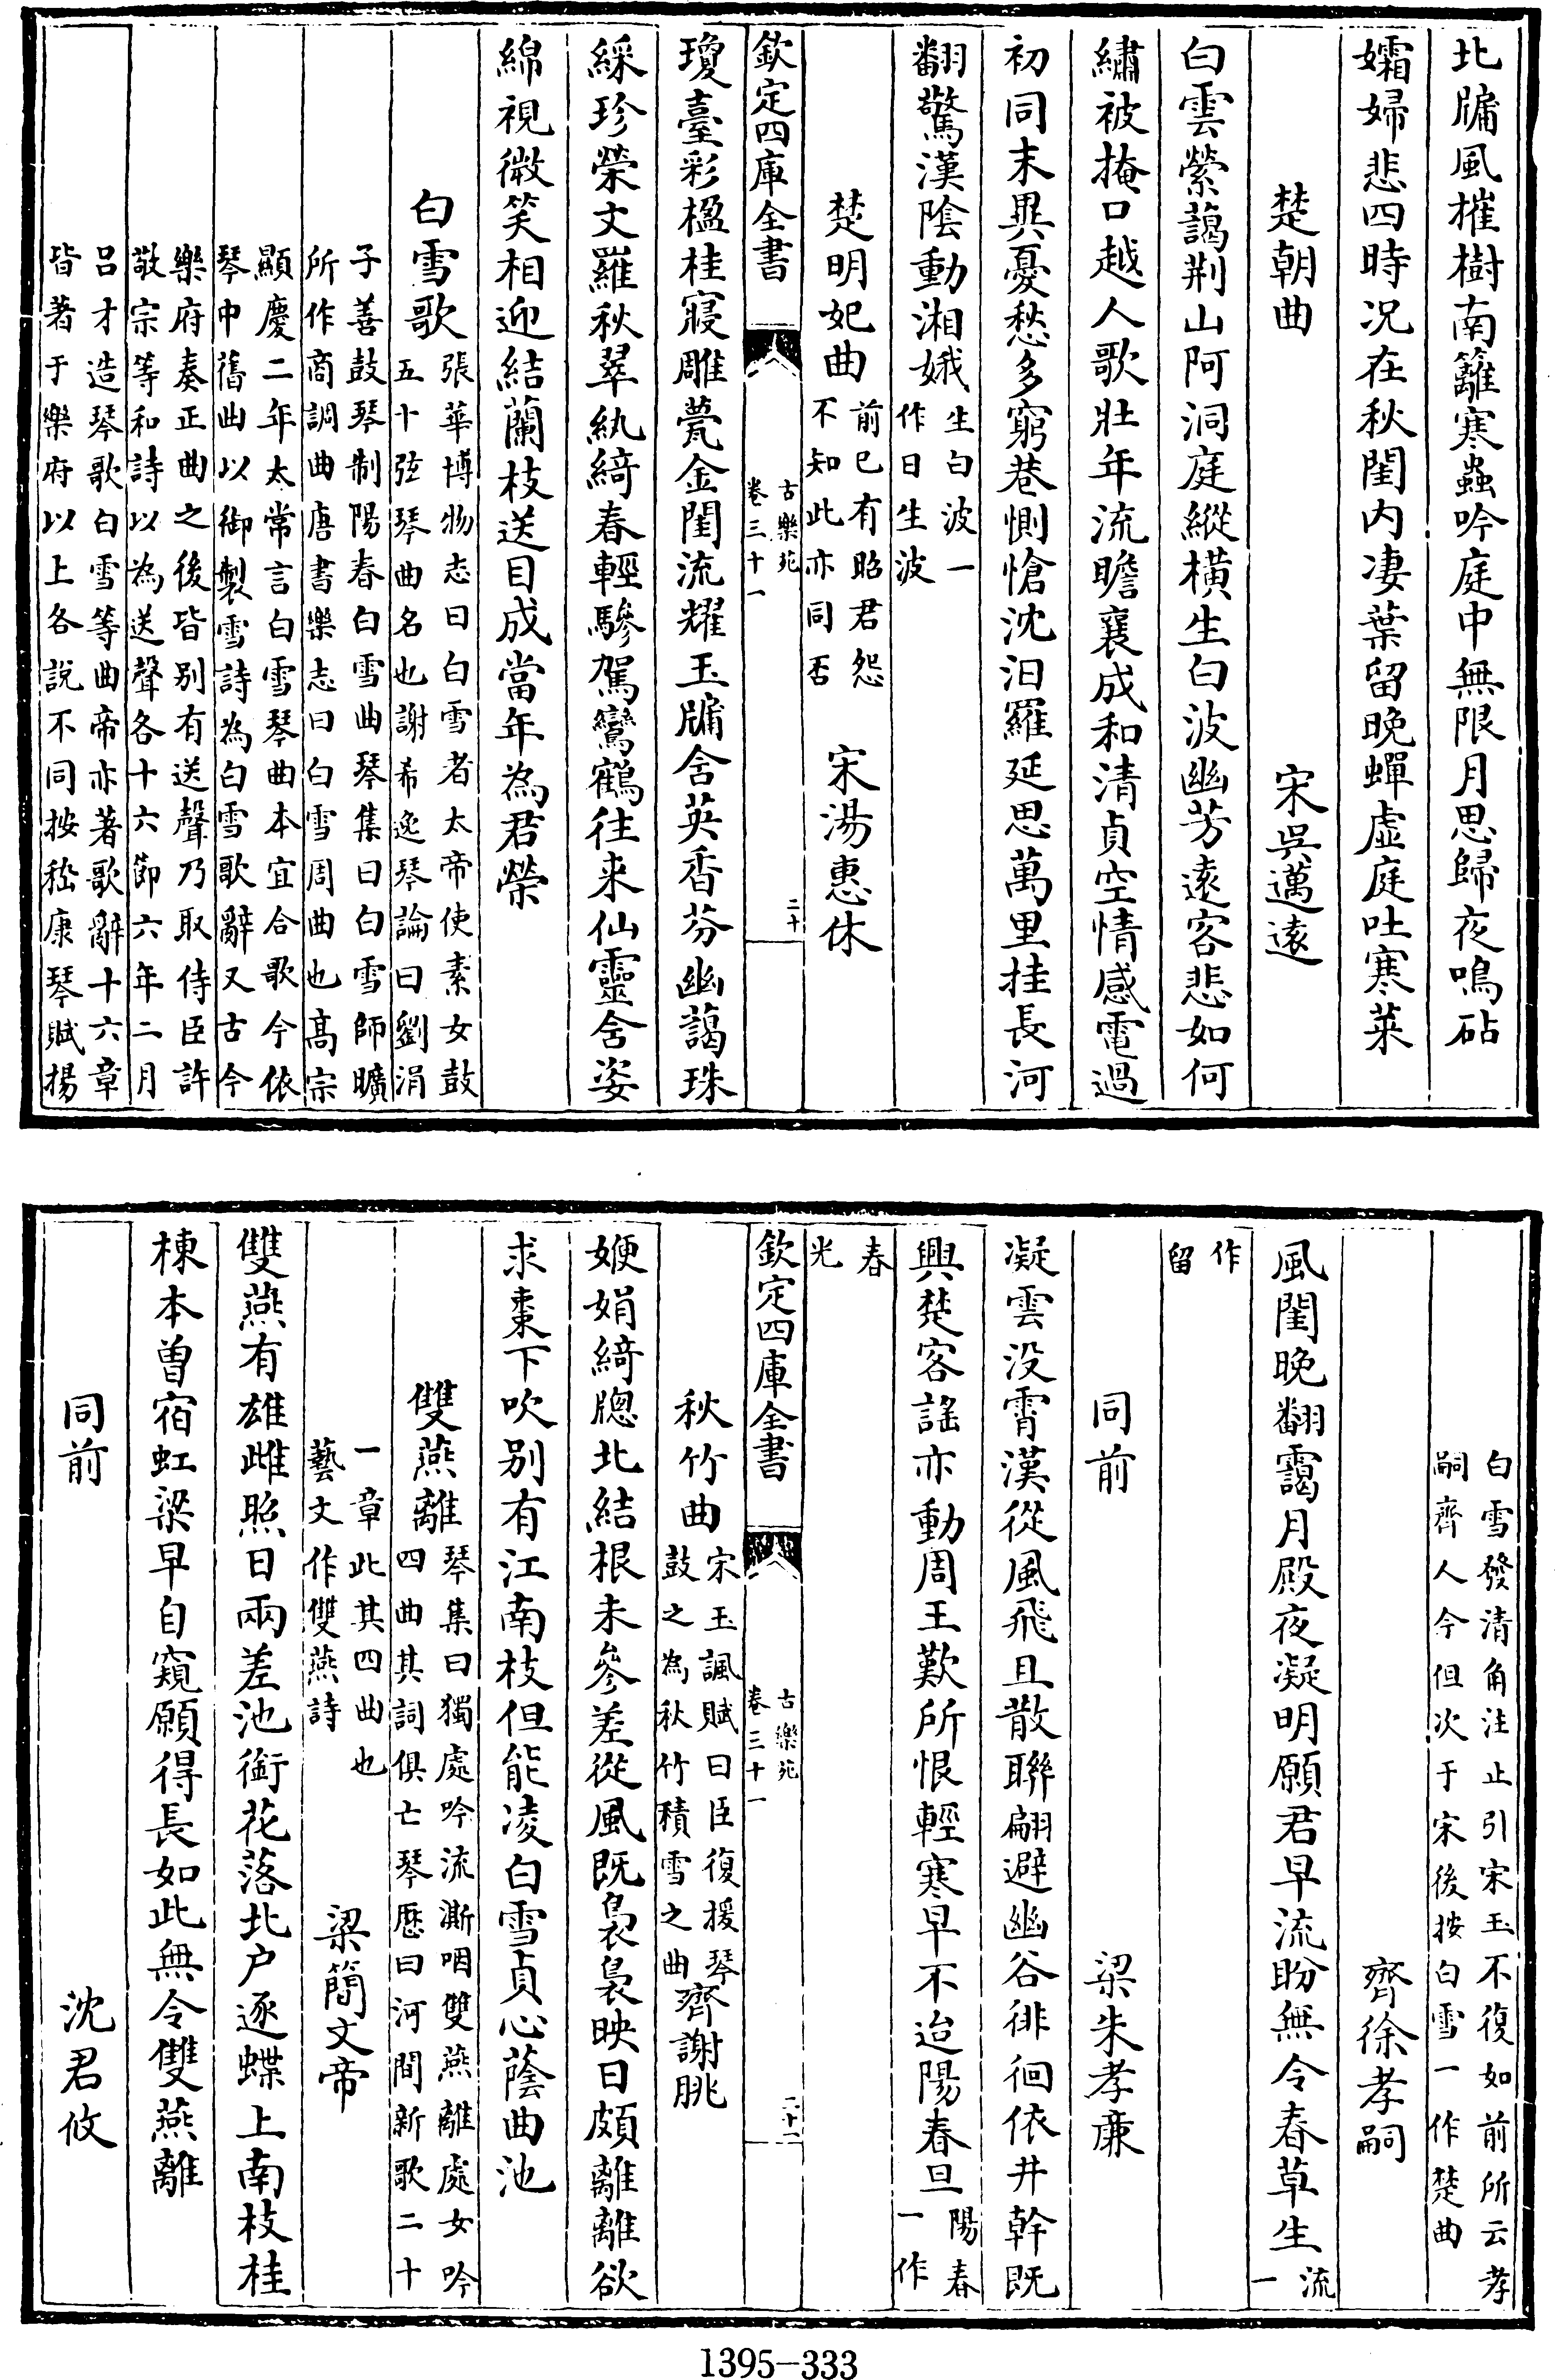 北牖風摧樹南籬寒蟲吟庭中無限月思歸夜鳴砧
孀婦悲四時况在秋閨内凄葉留晚蟬虚庭吐寒菜
楚朝曲 宋吳邁逺
白雲縈藹荆山阿洞庭縱横生白波幽芳逺客悲如何
繡被掩口越人歌壯年流瞻襄成和清貞空情感電過
初同末異憂愁多窮巷惻愴沈汨羅延思萬里挂長河
翻驚漢陰動湘娥生白波一作日生波
楚明妃曲前已有昭君怨不知此亦同否 宋湯惠休
欽定四庫全書 古樂苑卷三十一 二十
瓊臺彩楹桂寢雕甍金閨流耀玉牖含英香芬幽藹珠
綵珍榮文羅秋翠紈綺春輕驂駕鸞鶴往来仙靈含姿
綿視微笑相迎結蘭枝送目成當年為君榮
白雪歌張華博物志曰白雪者太帝使素女鼓五十弦琴曲名也謝希逸琴論曰劉涓
子善鼓琴制陽春白雪曲琴集曰白雪師曠所作商調曲唐書樂志曰白雪周曲也髙宗
顯慶二年太常言白雪琴曲本宜合歌今依琴中舊曲以御製雪詩為白雪歌辭又古今
樂府奏正曲之後皆别有送聲乃取侍臣許敬宗等和詩以為送聲各十六節六年二月
呂才造琴歌白雪等曲帝亦著歌辭十六章皆著于樂府以上各說不同按嵇康琴賦揚
白雪發清角注止引宋玉不復如前所云孝嗣齊人今但次于宋後按白雪一作楚曲
齊徐孝嗣
風閨晚翻靄月殿夜凝明願君早流盼無令春草生流一
作留
同前 梁朱孝廉
凝雲没霄漢從風飛且散聯翩避幽谷徘徊依井幹既
興楚客謠亦動周王歎所恨輕寒早不迨陽春旦陽春一作
春光
欽定四庫全書 古樂苑卷三十一 二十一
秋竹曲宋玉諷賦曰臣復援琴鼓之為秋竹積雪之曲 齊謝朓
㛹娟綺牕北結根未參差從風既裊裊映日頗離離欲
求棗下吹别有江南枝但能凌白雪貞心蔭曲池
雙燕離琴集曰獨處吟流澌咽雙燕離處女吟四曲其詞俱亡琴歷曰河間新歌二十
一章此其四曲也藝文作雙燕詩 梁簡文帝
雙燕有雄雌照日兩差池銜花落北户逐蝶上南枝桂
棟本曾宿虹梁早自窺願得長如此無令雙燕離
同前 沈君攸
1395-333